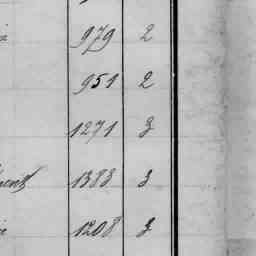 979 2
951 2
1271 3
1383 3
1208 3